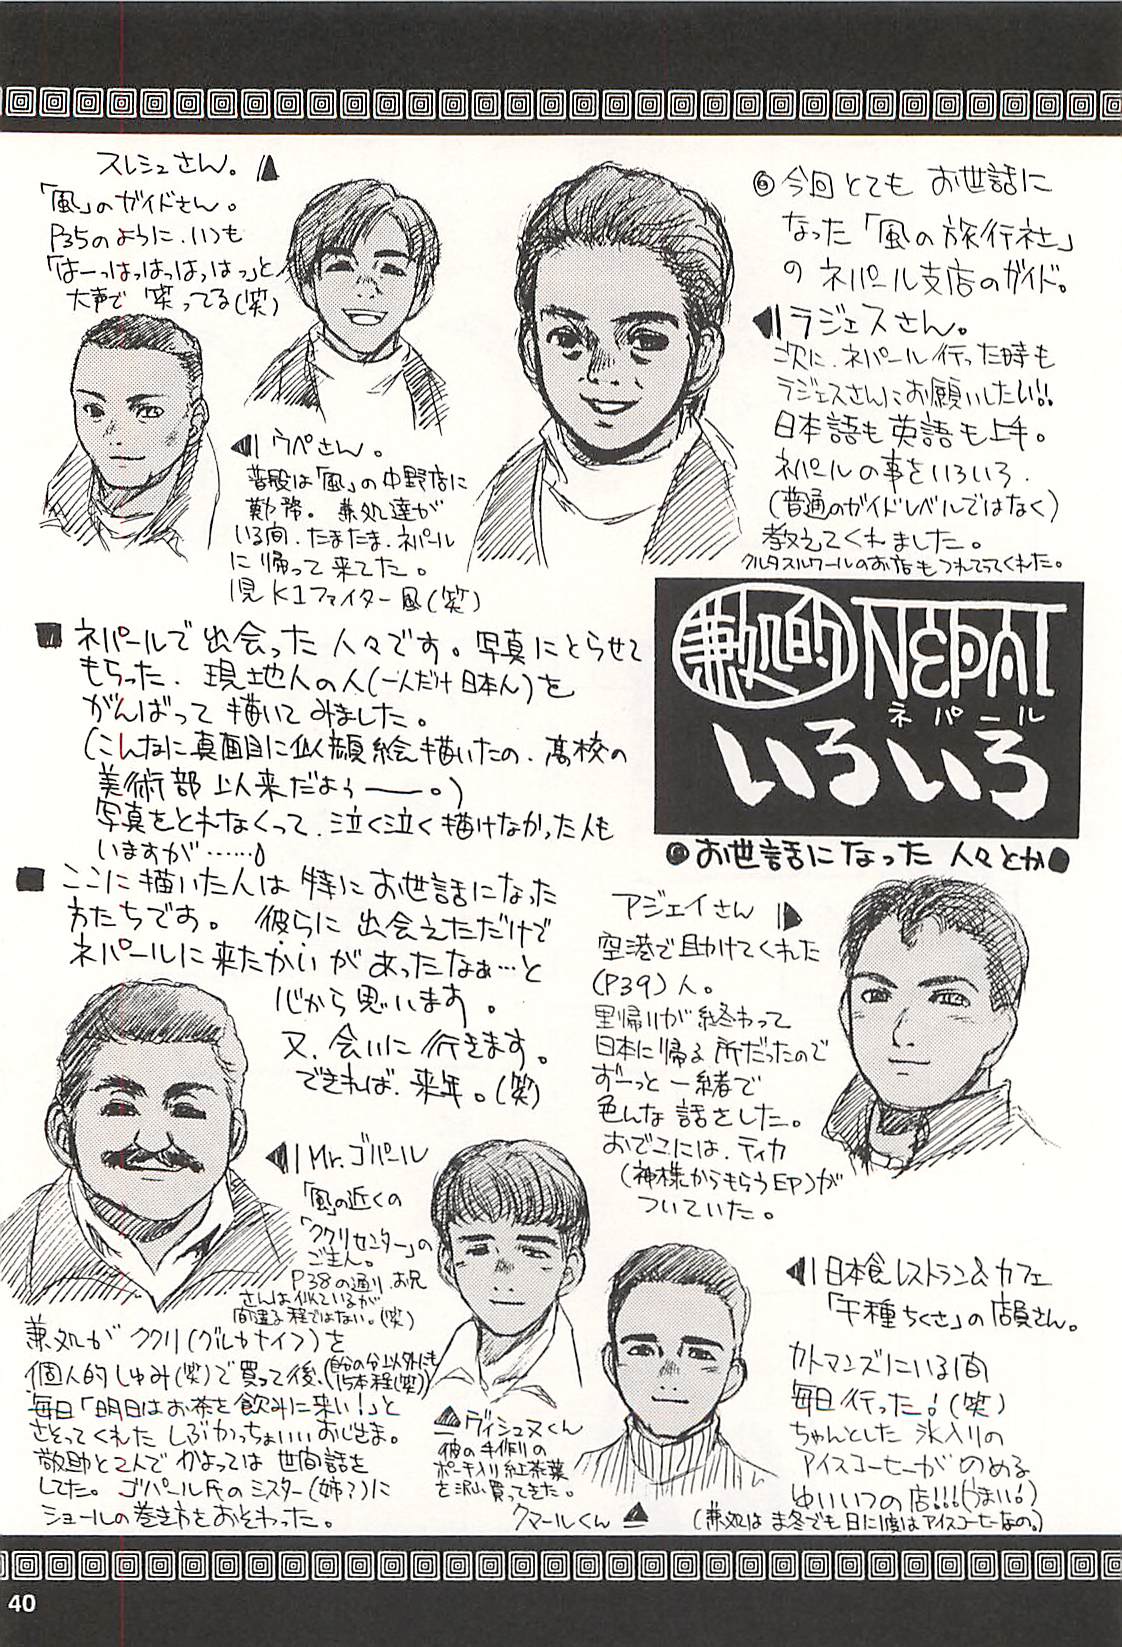 ⑥今回とても お世話に
なった「風の旅行社」
の ネパール支店のガイド。
ラジェスさん。
次に、ネパール行った時も
ラジェスさんにお願いしたい!!
日本語も英語も上手。
ネパールの事をいろいろ、
(普通のガイドレベルではなく)
教えてくれました。
クルタスルワールのお店もつれてってくれた。
スレシュさん。
「風」のガイドさん。
P35のように、いつも
「はーっはっはっはっはっ」と
大声で 笑ってる(笑)
ウペさん。
普段は「風」の中野店に
勤務。 兼処達が
いる間、たまたま、ネパール
に帰って来てた。
K1ファイター風(笑)
兼処的 NEPAL
ネパール
いろいろ
お世話になった 人々とか
■ ネパールで出会った人々です。写真にとらせて
もらった、現地人の人(一人だけ日本人)を
がんばって描いてみました。
(こんなに真面目に似顔絵描いたの、高校の
美術部以来だよぅ——。)
写真をとれなくって、泣く泣く描けなかった人も
いますが……。
■ ここに描いた人は 特にお世話になった
方たちです。 彼らに出会えただけで
ネパールに来たかいがあったなぁ…と
心から思います。
又、会いに行きます。
できれば、来年。(笑)
アジェイさん
空港で助けてくれた
(P39)人。
里帰りが終わって
日本に帰る所だったので
ずーっと一緒で
色んな話をした。
おでこには、ティカ
(神様からもらう印)が
ついていた。
Mr.ゴパール
「風」の近くの
「ククリセンター」の
ご主人。
P38の通り、お兄
さんは似ているが
間違う程ではない。(笑)
兼処がククリ(グルカナイフ)を
個人的しゅみ(笑)で買って後、(自分の分以外にも
15本程(笑))
毎日「明日はお茶を飲みに来い!」と
さそってくれた しぶかっちょいいおじさま。
敬助と2人で かよっては 世間話を
してた。 ゴパール氏のシスター(姉?)に
ショールの巻き方をおそわった。
ヴィシュヌくん
彼の手作りの
ポーチ入り紅茶葉
を沢山買ってきた。
クマールくん
日本食レストラン&カフェ
「千種ちくさ」の店員さん。
カトマンズにいる間
毎日行った!(笑)
ちゃんとした 氷入りの
アイスコーヒーがのめる
ゆいいつの店!!!(うまい!)
(兼処は ま冬でも日に1度はアイスコーヒーなの。)
40